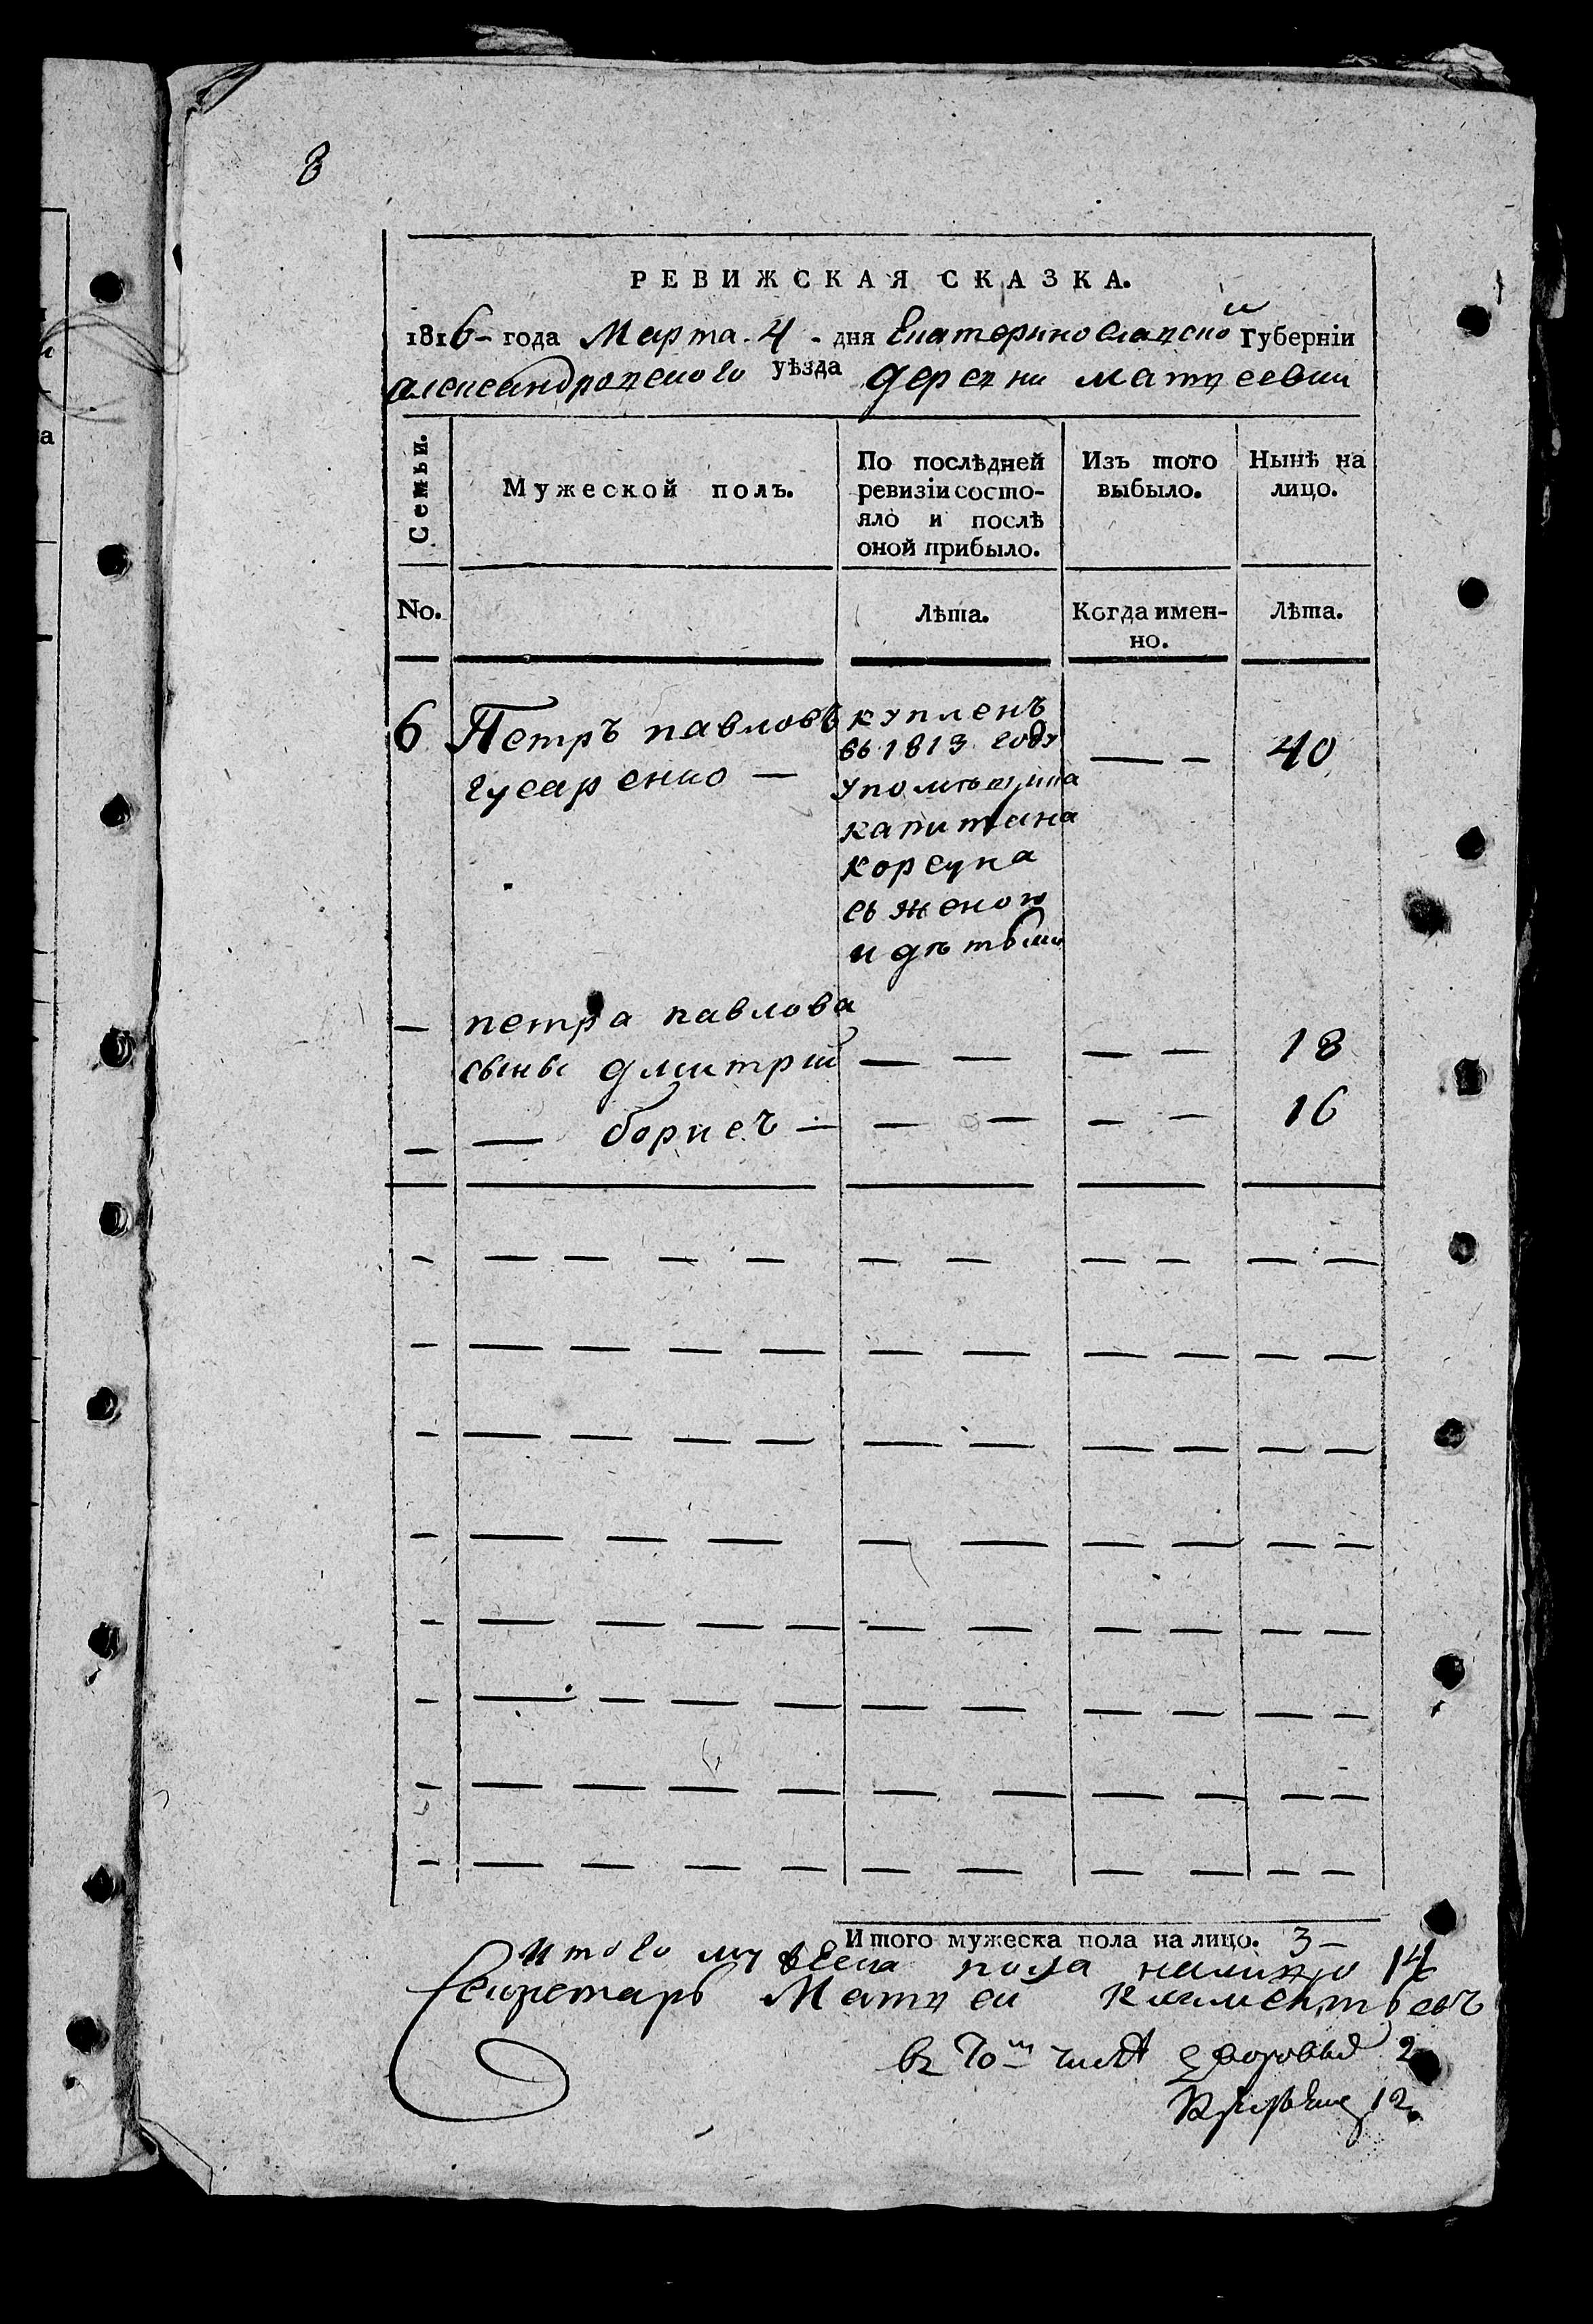 8
РЕВИЖСКАЯ СКАЗКА.
1816 - года Марта. 4 - дня Екатеринославской Губерніи
александровского уѣзда деревни матвеевки
Семьи.
Мужеской полъ.
По послѣдней ревизіи состояло и послѣ оной прибыло.
Изъ того выбыло.
Нынѣ на лицо.
No.
Лѣта.
Когда именно.
Лѣта.
6 Петръ павловъ
гусаренко —
купленъ
въ 1813 году
упомѣщика
капитана
корсуна
съ женою
и дѣтьми
— — 40
— петра павлова
сыны дмитрий — — — — 18
— — борисъ — — — — — 16
Итого мужеска пола на лицо. 3 —
итого мужеска пола налицо 14
Секретарь Матвей Климентьевъ
въ томъ числѣ дворовых 2
Крестьянъ 12.